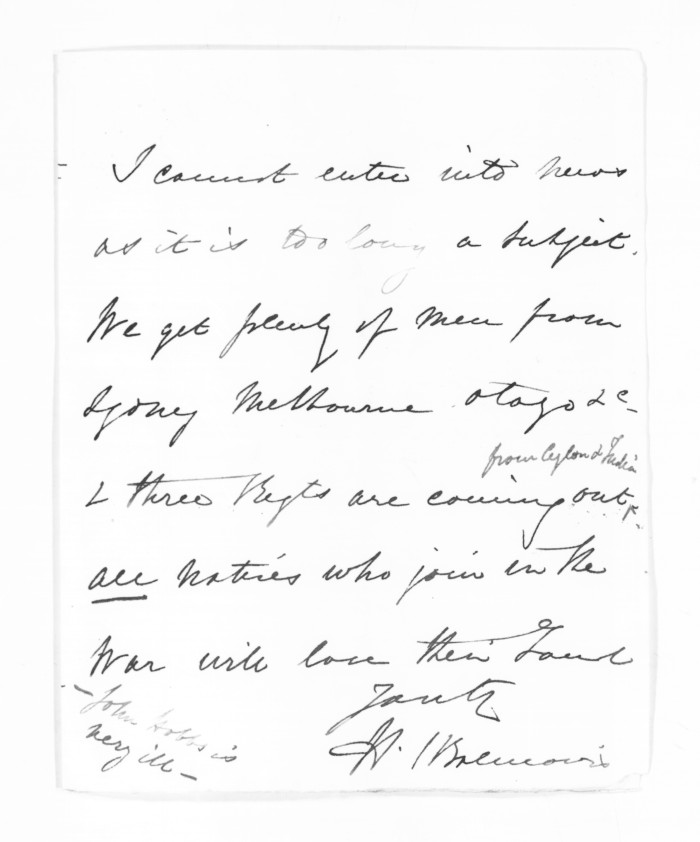 I cannot enter into news
as it is too long a subject.
We get plenty of men from
Sydney Melbourne Otago &c -
from Ceylon & India
& three Regts are coming out
all natives who join in the
War will lose their Land
H.
- John Hobbs is
very ill -